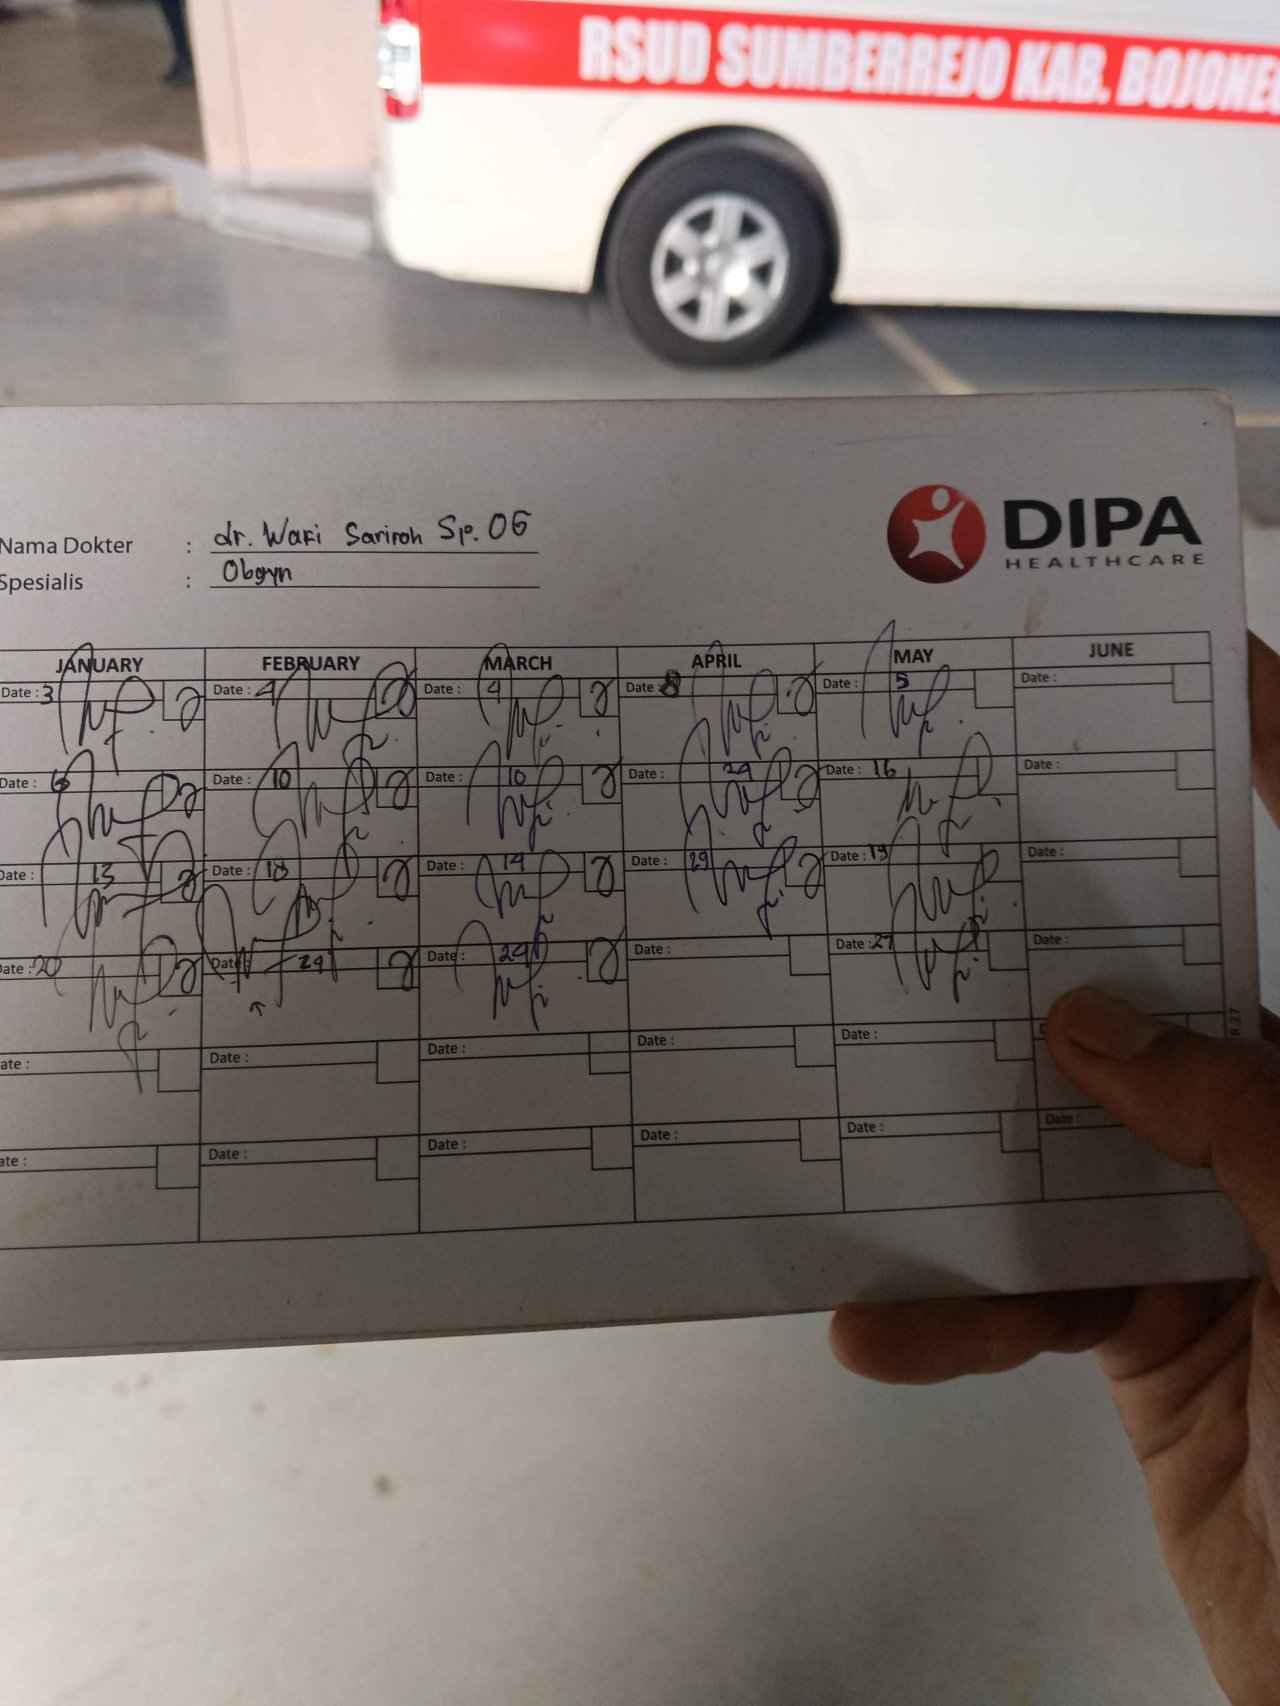 RSUD SUMBERREJO KAB. BOJONEG
DIPA
HEALTHCARE
Nama Dokter : dr. Wari Sariroh Sp. OG
Spesialis : Obgyn
JANUARY FEBRUARY MARCH APRIL MAY JUNE
Date : 3 Date : 4 Date : 4 Date : 8 Date : 5 Date :
Date : 6 Date : 10 Date : 10 Date : 24 Date : 16 Date :
Date : 13 Date : 18 Date : 14 Date : 29 Date : 19 Date :
Date : 20 Date : 24 Date : 24 Date : Date : 27 Date :
ate : Date : Date : Date : Date :
ate : Date : Date : Date : Date : Date :